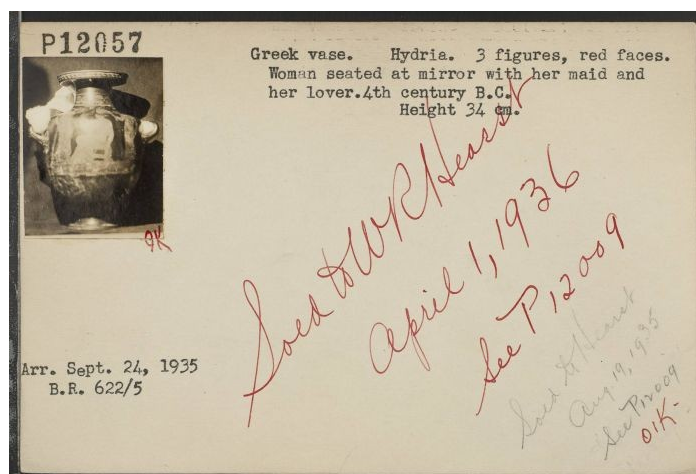 P12057
Greek vase. Hydria. 3 figures, red faces.
Woman seated at mirror with her maid and
her lover.4th century B.C.
Height 34 cm.
OK
Sold to W R Hearst
April 1, 1936
See P12009
Arr. Sept. 24, 1935
B.R. 622/5
Sold to Hearst
Aug 19, 1935
See P12009
O.K-